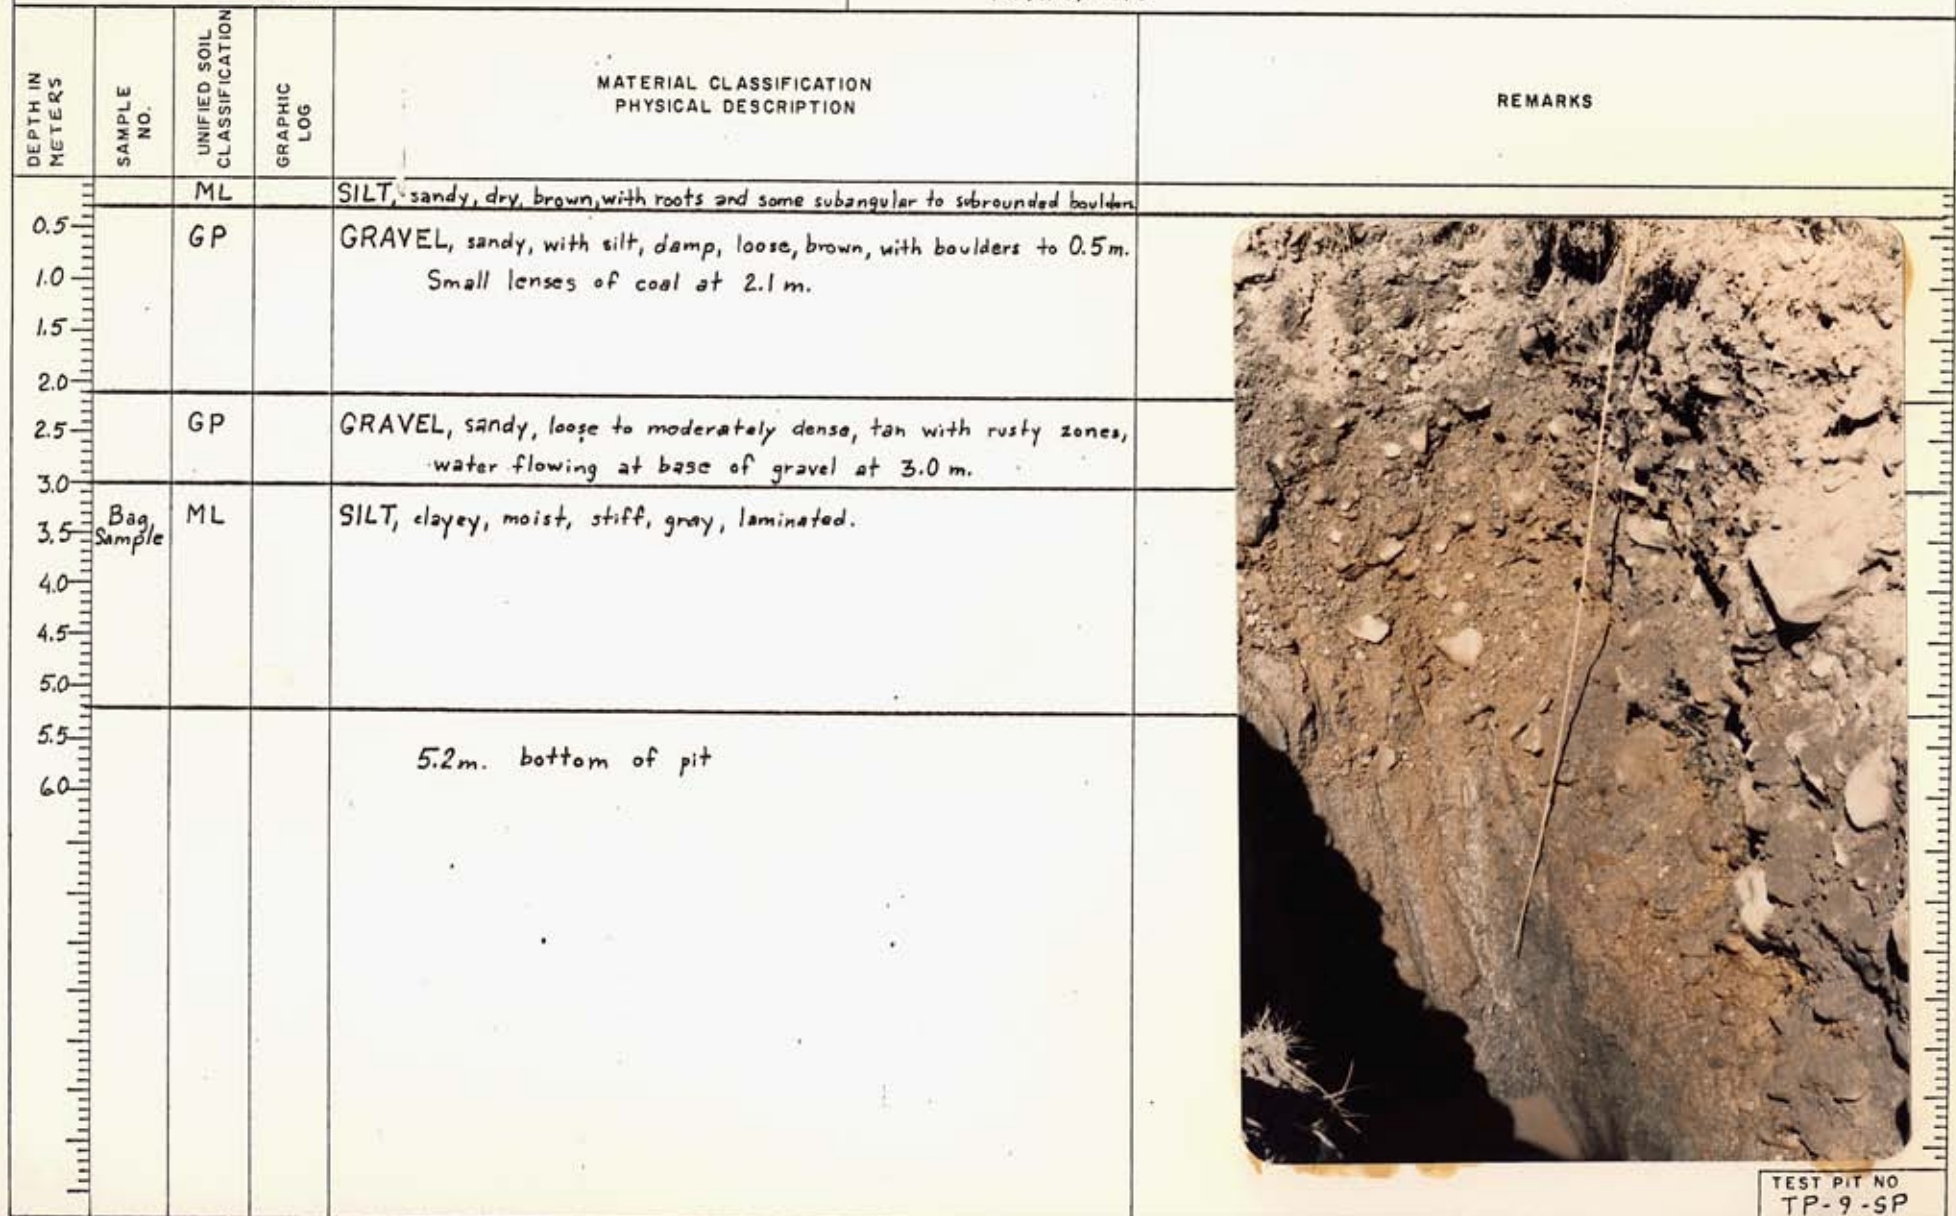 DEPTH IN
METERS
SAMPLE
NO.
UNIFIED SOIL
CLASSIFICATION
GRAPHIC
LOG
MATERIAL CLASSIFICATION
PHYSICAL DESCRIPTION
REMARKS
ML
SILT, sandy, dry, brown, with roots and some subangular to subrounded boulders
0.5
GP
GRAVEL, sandy, with silt, damp, loose, brown, with boulders to 0.5 m.
1.0
Small lenses of coal at 2.1 m.
1.5
2.0
2.5
GP
GRAVEL, sandy, loose to moderately dense, tan with rusty zones,
water flowing at base of gravel at 3.0 m.
3.0
Bag
Sample
ML
SILT, clayey, moist, stiff, gray, laminated.
3.5
4.0
4.5
5.0
5.5
5.2 m. bottom of pit
6.0
TEST PIT NO
TP-9-SP